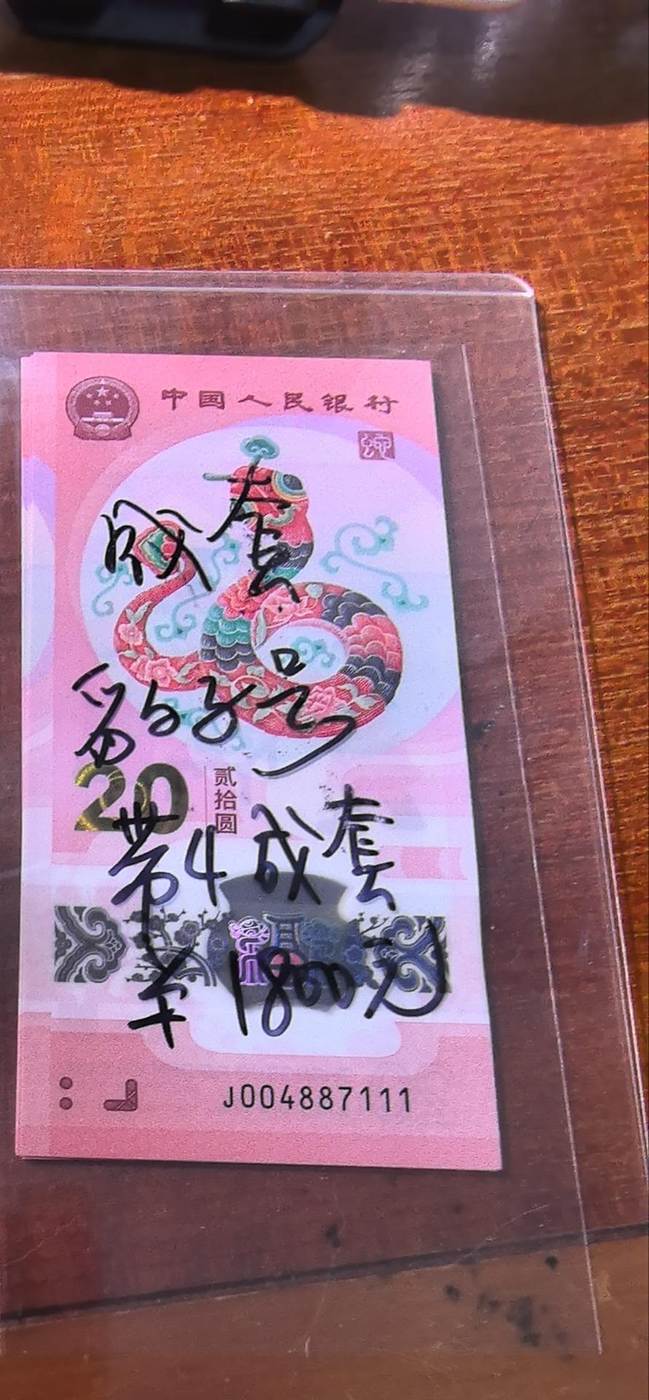 中国人民银行
蛇
成套
豹子号
20
贰拾圆
带4成套
羊1800元
J004887111